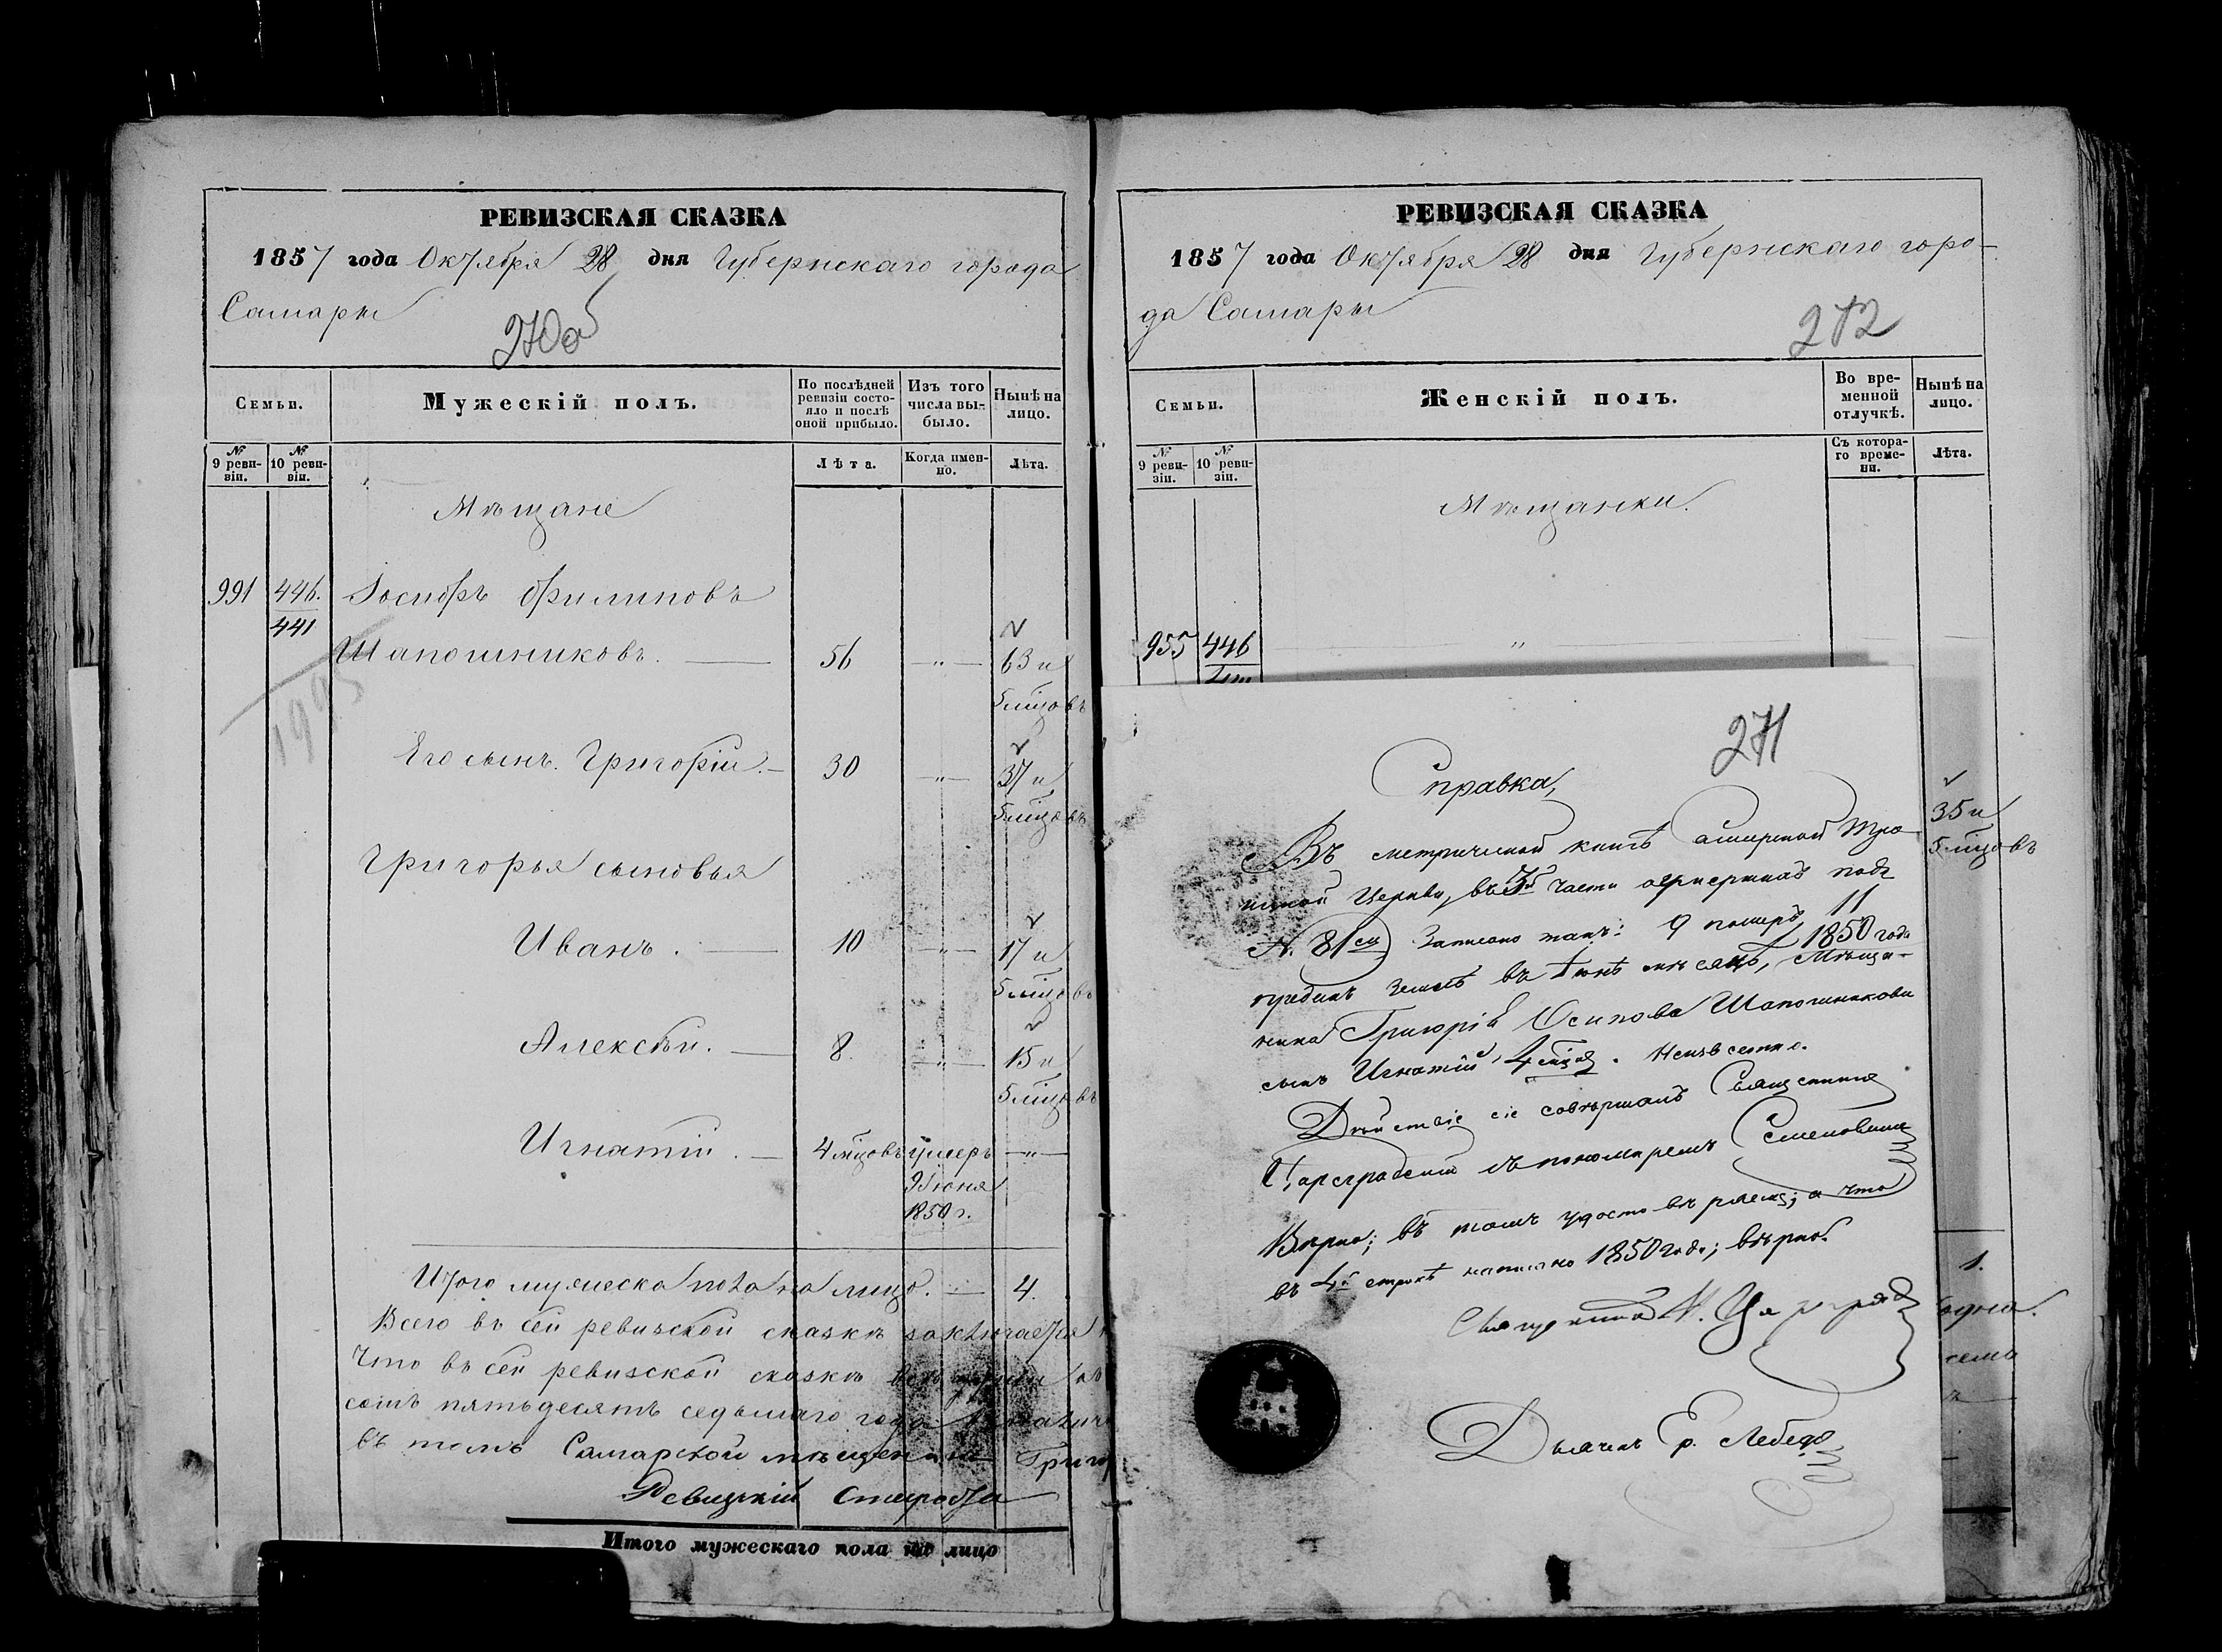 РЕВИЗСКАЯ СКАЗКА
1857 года Октября 28 дня Губернскаго города
Самары
270об
Семьи.
Мужескій полъ.
По послѣдней ревизіи состояло и послѣ оной прибыло.
Изъ того числа выбыло.
Нынѣ на лицо.
№ 9 ревизіи.
№ 10 ревизіи.
Лѣта.
Когда именно.
Лѣта.
Мѣщане
991 446. Іосифъ Филиповъ
441
Шапошниковъ. 56 — " — 63 и
5 мѣцовъ
1995
Его сынъ Григорій. 30 — " — 37 и
5 мѣцовъ
Григорья сыновья
Иванъ. 10 — " — 17 и
5 мѣцовъ
Алексѣй. 8. — " — 15 и
5 мѣцовъ
Игнатій. 4 мѣцовъ умеръ — " —
9 Іюня
1850 г.
Итого мужеска пола на лицо. 4.
Всего въ сей ревизской сказкѣ заключается
Что въ сей ревизской сказкѣ всѣ
сотъ пятьдесятъ седьмаго года
въ томъ Самарской мѣщанинъ Григ
Ревизскій Староста
Итого мужескаго пола на лицо
РЕВИЗСКАЯ СКАЗКА
1857 года Октября 28 дня Губернскаго горо-
да Самары
272
Семьи.
Женскій полъ.
Во временной отлучкѣ.
Нынѣ на лицо.
№ 9 ревизіи.
№ 10 ревизіи.
Съ котораго времени.
Лѣта.
Мѣщанки.
955 446 "
35 и
5 мѣцовъ
1.
одна.
семь
271
Справка,
Въ метрической книгѣ Тро-
ицкой Церкви, въ 3й части подъ
№ 81 Записано такъ: 9 померъ, 11
погребенъ Землѣ въ Іюнѣ мѣсяцѣ, 1850 года Мѣща-
нина Григорія Осипова Шапошникова
сынъ Игнатій, 4 мѣця. Неизвѣстно.
Дѣйствіе сіе совѣршалъ Священникъ
Цареградскій съ пономаремъ Семеновымъ
Вѣрно; въ томъ удостовѣряемъ; а что
въ 4й строкѣ написано 1850 года; вѣрно.
Священникъ Н. Цареград
Дьячекъ Е. Лебедев